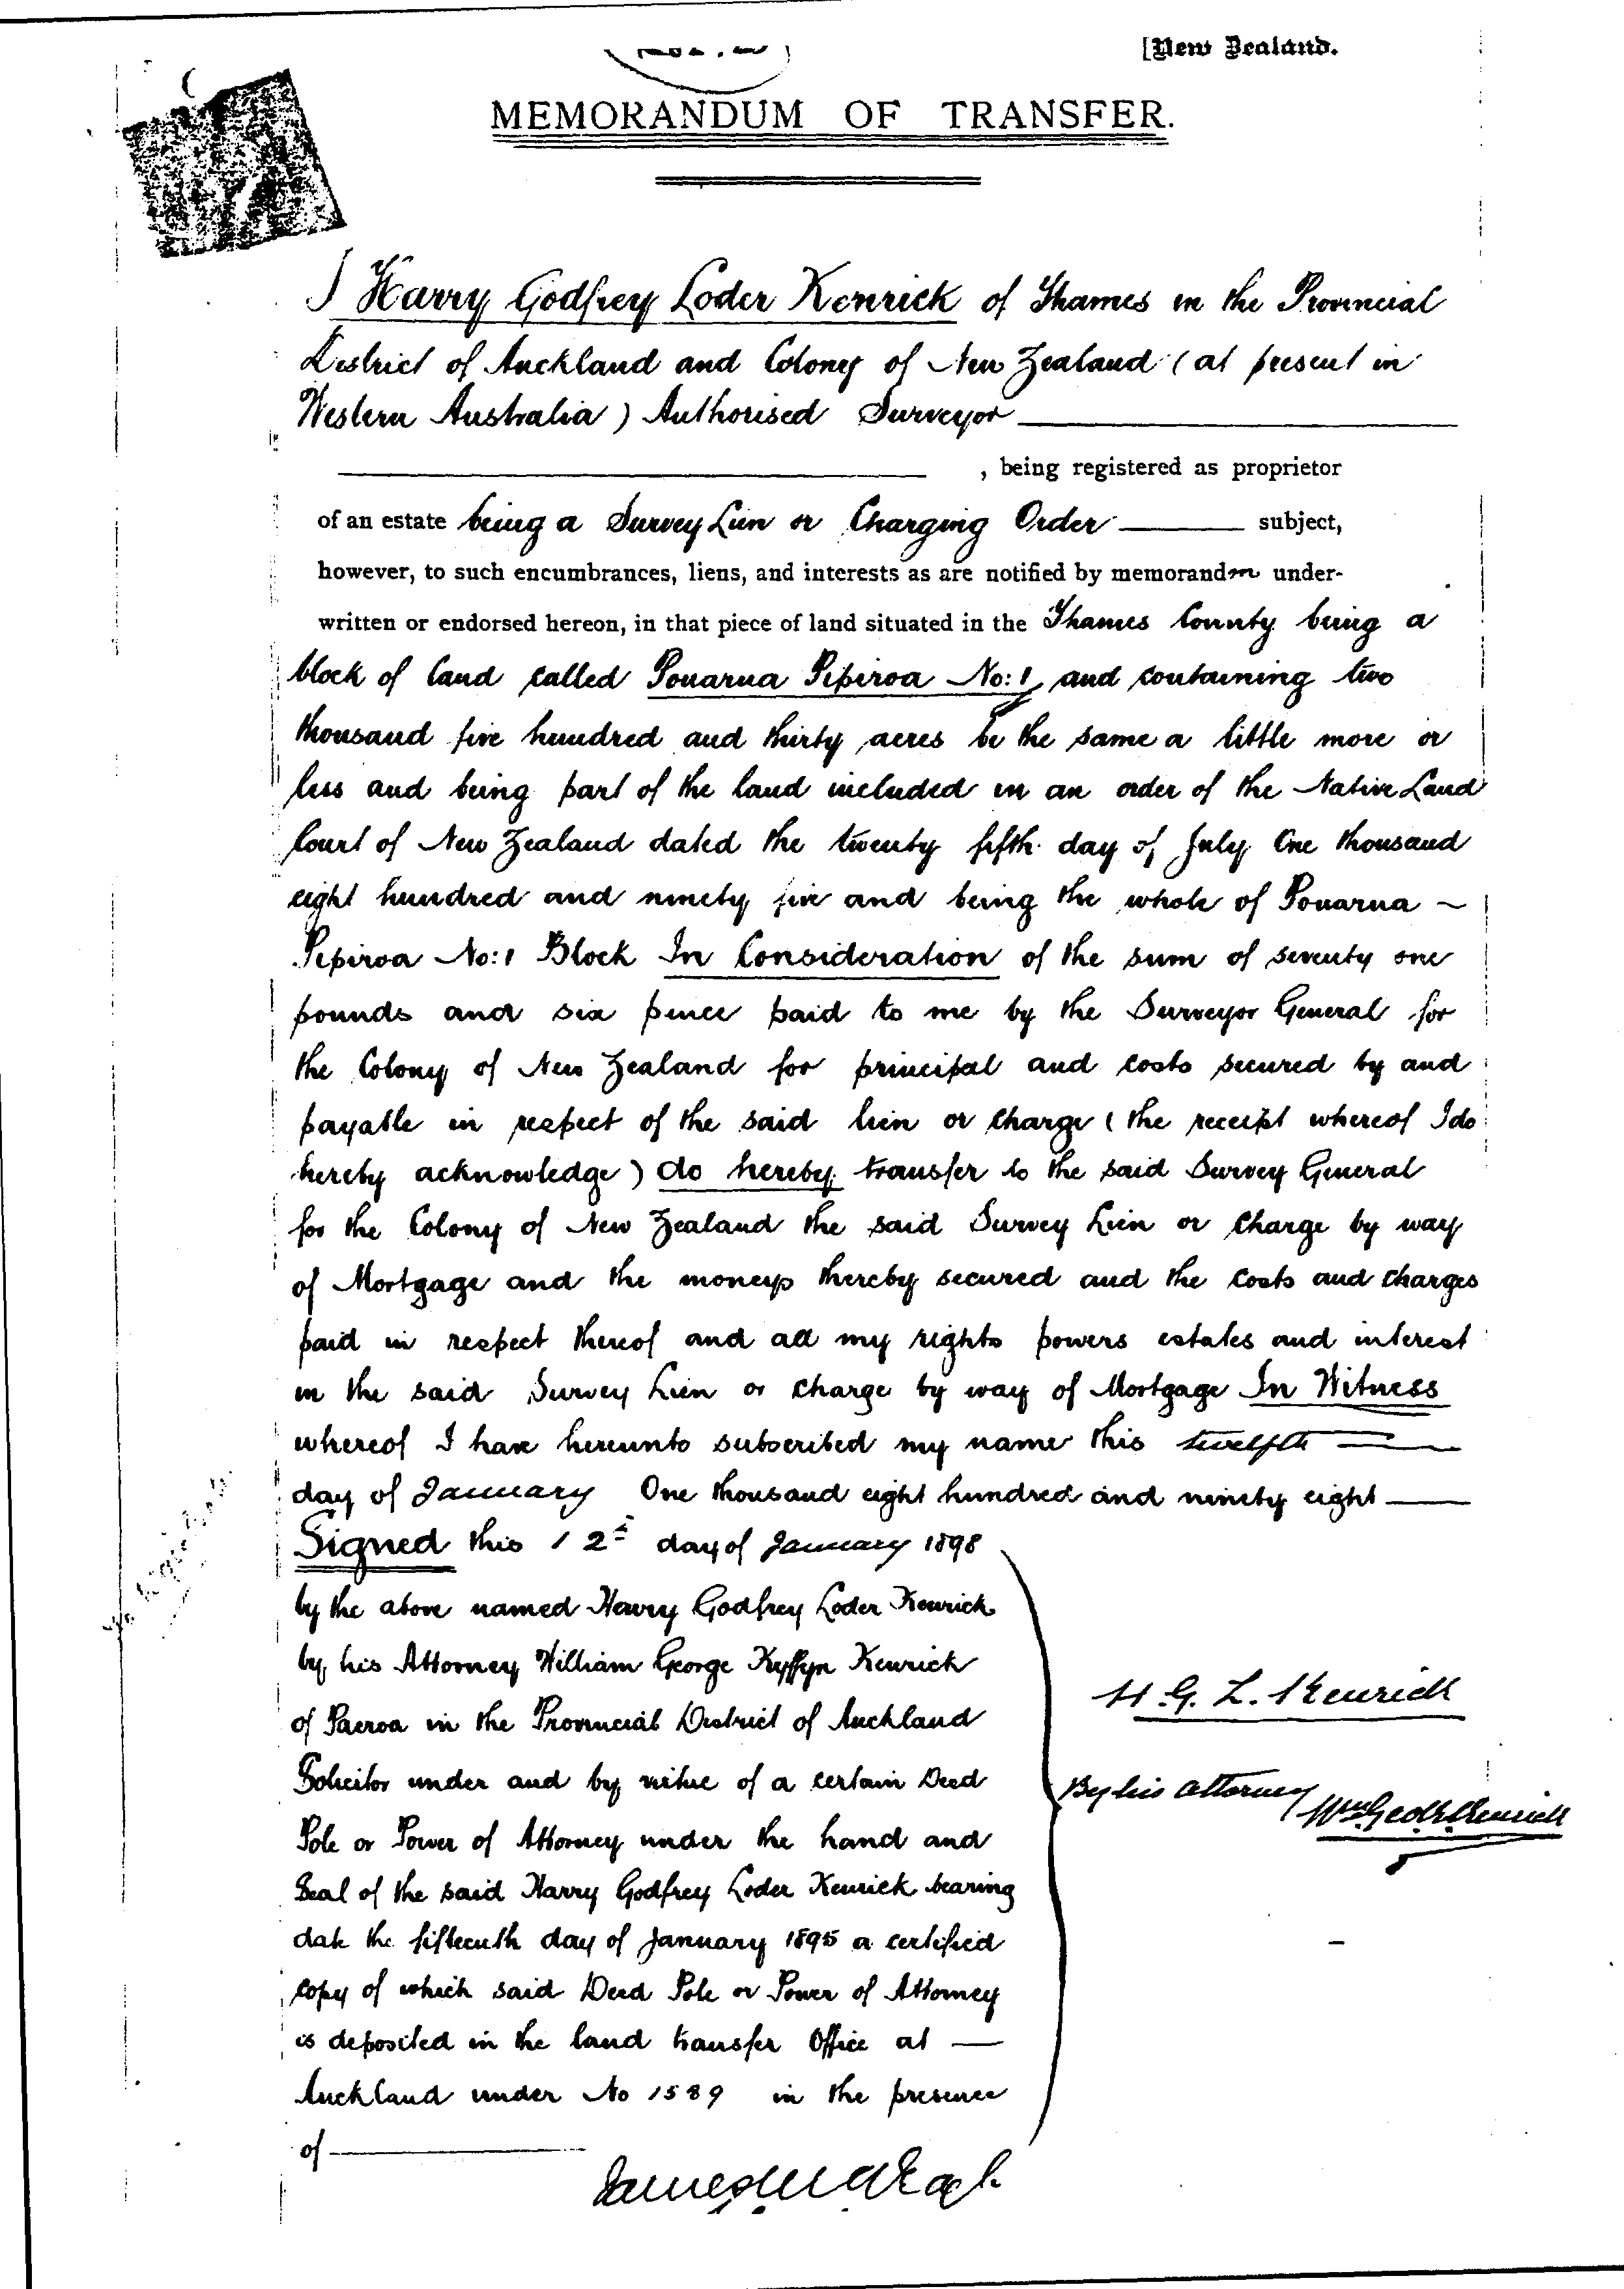 [New Zealand.
MEMORANDUM OF TRANSFER.
I Harry Godfrey Loder Kenrick of Thames in the Provincial
District of Auckland and Colony of New Zealand (at present in
Western Australia) Authorised Surveyor
, being registered as proprietor
of an estate being a Survey Lien or Charging Order subject,
however, to such encumbrances, liens, and interests as are notified by memorandm under-
written or endorsed hereon, in that piece of land situated in the Thames County being a
block of land called Pouarua Pipiroa No: 1 and containing two
thousand five hundred and thirty acres be the same a little more or
less and being part of the land included in an order of the Native Land
Court of New Zealand dated the twenty fifth day of July One thousand
eight hundred and ninety five and being the whole of Pouarua ~
Pipiroa No: 1 Block In Consideration of the sum of seventy one
pounds and six pence paid to me by the Surveyor General for
the Colony of New Zealand for principal and costs secured by and
payable in respect of the said lien or charge (the receipt whereof I do
hereby acknowledge) do hereby transfer to the said Survey General
for the Colony of New Zealand the said Survey Lien or Charge by way
of Mortgage and the moneys thereby secured and the costs and charges
paid in respect thereof and all my rights powers estates and interest
in the said Survey Lien or charge by way of Mortgage In Witness
whereof I have hereunto subscribed my name this twelfth
day of January One thousand eight hundred and ninety eight
Signed this 12th day of January 1898
by the above named Harry Godfrey Loder Kenrick
by his Attorney William George Kyffyn Kenrick
of Paeroa in the Provincial District of Auckland
Solicitor under and by virtue of a certain Deed
Pole or Power of Attorney under the hand and
Seal of the said Harry Godfrey Loder Kenrick bearing
date the fifteenth day of January 1895 a certified
copy of which said Deed Pole or Power of Attorney
is deposited in the land transfer Office at
Auckland under No 1589 in the presence
of
H. G. L. Kenrick
By his attorney
Wm Geo K Kenrick